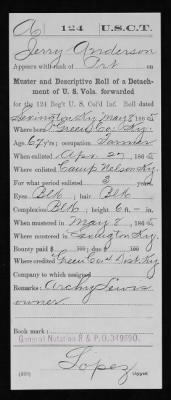 A | 124 | U.S.C.T.
Jerry Anderson
Appears with rank of Pvt on
Muster and Descriptive Roll of a Detach-
ment of U. S. Vols. forwarded
for the 124 Reg't U. S. Col'd Inf. Roll dated
Lexington Ky May 8, 1865
Where born Green Co Ky.
Age, y'rs; occupation Farmer
When enlisted Apr. 27, 1865
Where enlisted Camp Nelson Ky
For what period enlisted 3 years.
Eyes Blk; hair Blk
Complexion Blk; height 6 ft. in.
When mustered in May 8, 1865
Where mustered in Lexington Ky
Bounty paid $ 100; due $ 100
Where credited Green Co 4 Dist Ky
Company to which assigned
Remarks: Archy Lewis
owner
Book mark:
General Notation R & P. O. 349890.
Lopez
Copyist.